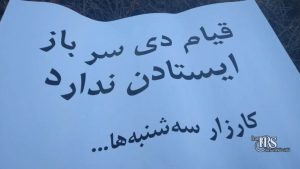 قیام دی سر باز
ایستادن ندارد
کارزار سه‌شنبه‌ها...